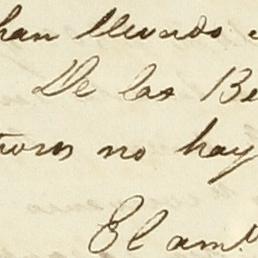 han llevado
De las Be
no hay
El am.